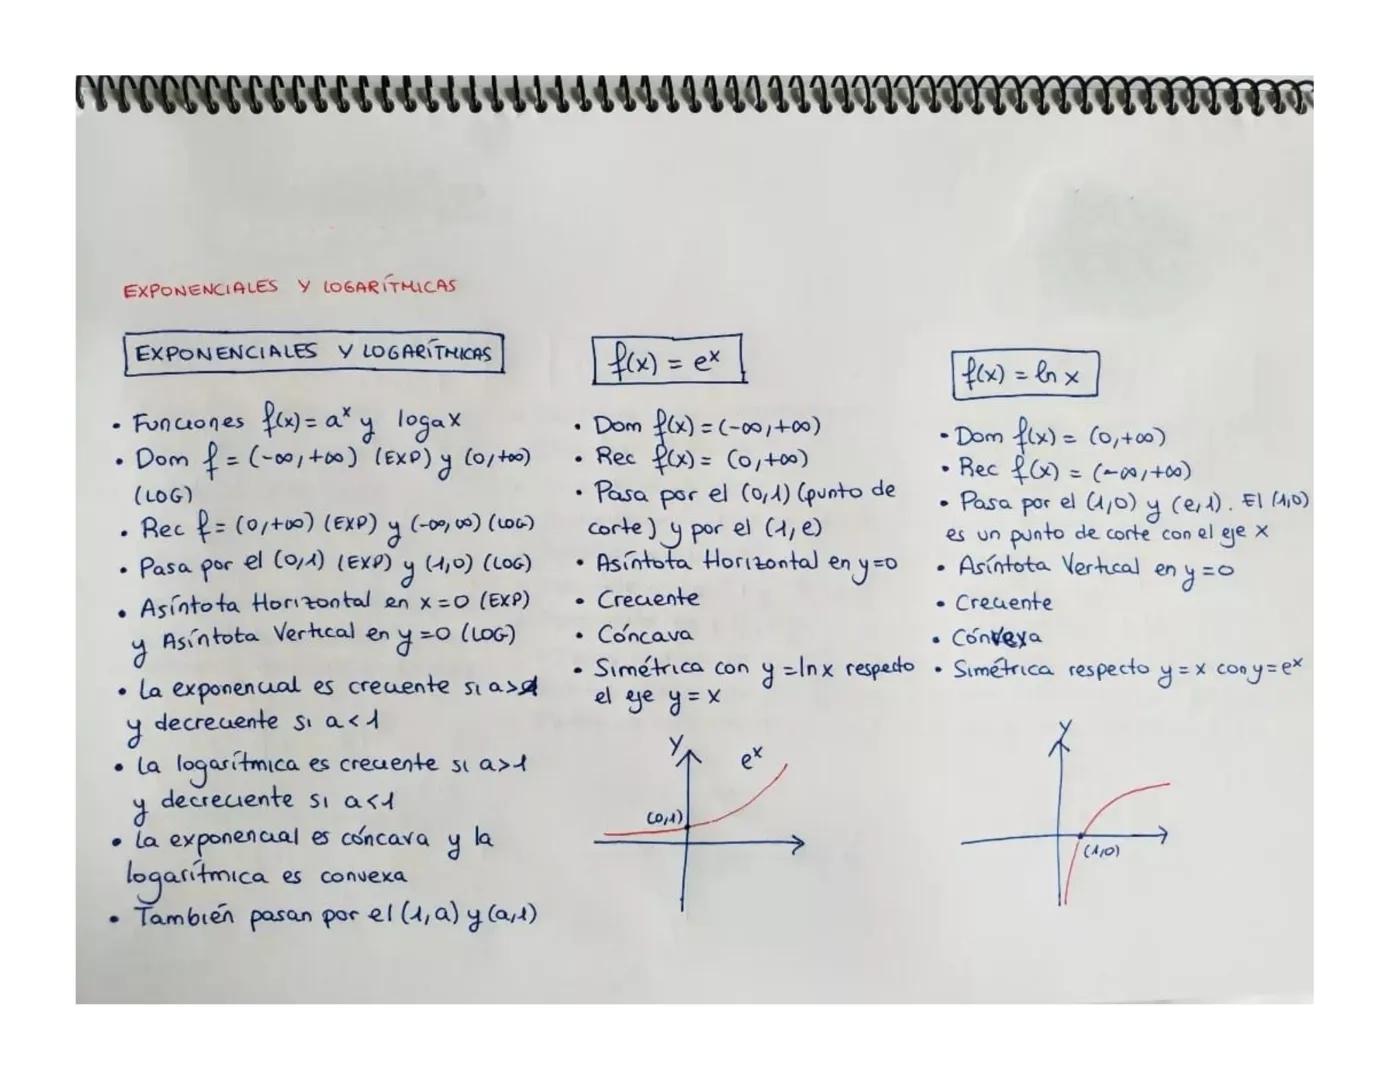 EXPONENCIALES Y LOGARÍTMICAS
EXPONENCIALES Y LOGARÍTMICAS
• Funciones f(x) = aˣ y logax
• Dom f = (-∞,+∞) (EXP) y (0,+∞)
(LOG)
• Rec f = (0,+∞) (EXP) y (-∞,∞) (LOG)
• Pasa por el (0,1) (EXP) y (1,0) (LOG)
• Asíntota Horizontal en x=0 (EXP)
y Asíntota Vertical en y=0 (LOG)
• La exponencial es creciente si a>1
y decreciente si a<1
• La logarítmica es creciente si a>1
y decreciente si a<1
• La exponencial es cóncava y la
logarítmica es convexa
• También pasan por el (1,a) y (a,1)
f(x) = eˣ
• Dom f(x) = (-∞,+∞)
• Rec f(x) = (0,+∞)
• Pasa por el (0,1) (punto de
corte) y por el (1,e)
• Asíntota Horizontal en y=0
• Creciente
• Cóncava
• Simétrica con y=lnx respecto
el eje y=x
Y
eˣ
(0,1)
f(x) = ln x
• Dom f(x) = (0,+∞)
• Rec f(x) = (-∞,+∞)
• Pasa por el (1,0) y (e,1). El (1,0)
es un punto de corte con el eje x
• Asíntota Vertical en y=0
• Creciente
• Convexa
• Simétrica respecto y=x con y=eˣ
Y
(1,0)